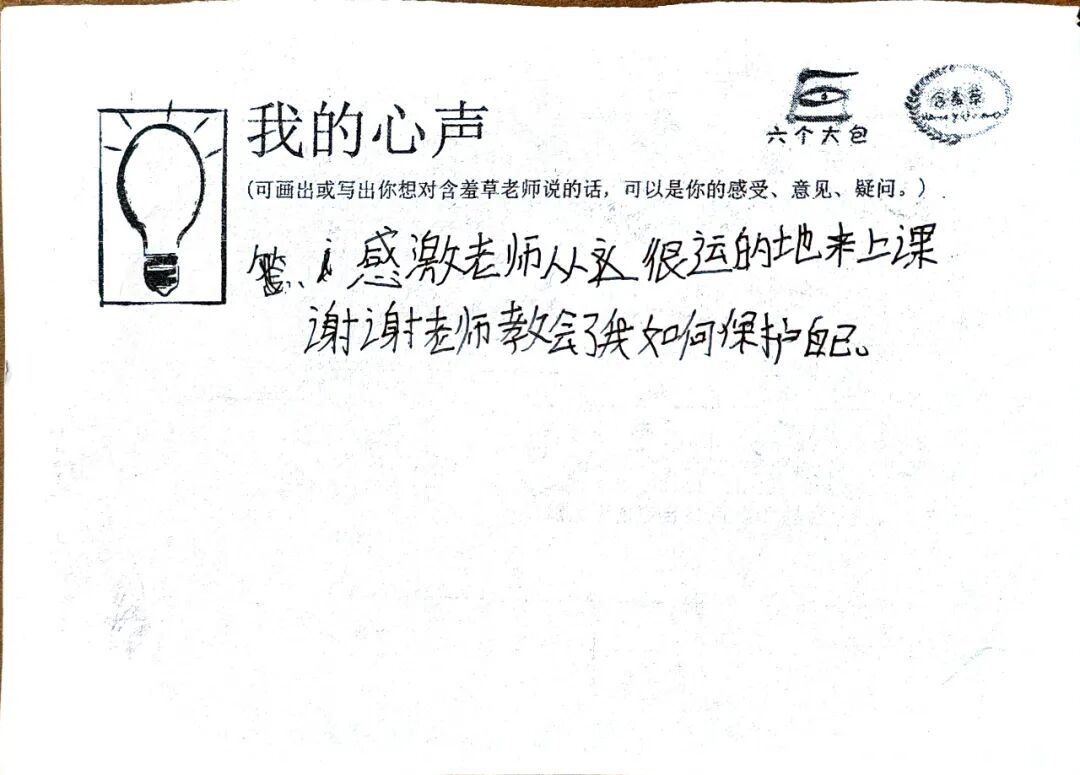 我的心声
六个大包
含羞草
(可画出或写出你想对含羞草老师说的话，可以是你的感受、意见、疑问。)
感激老师从这很运的地来上课
谢谢老师教会了我如何保护自己。